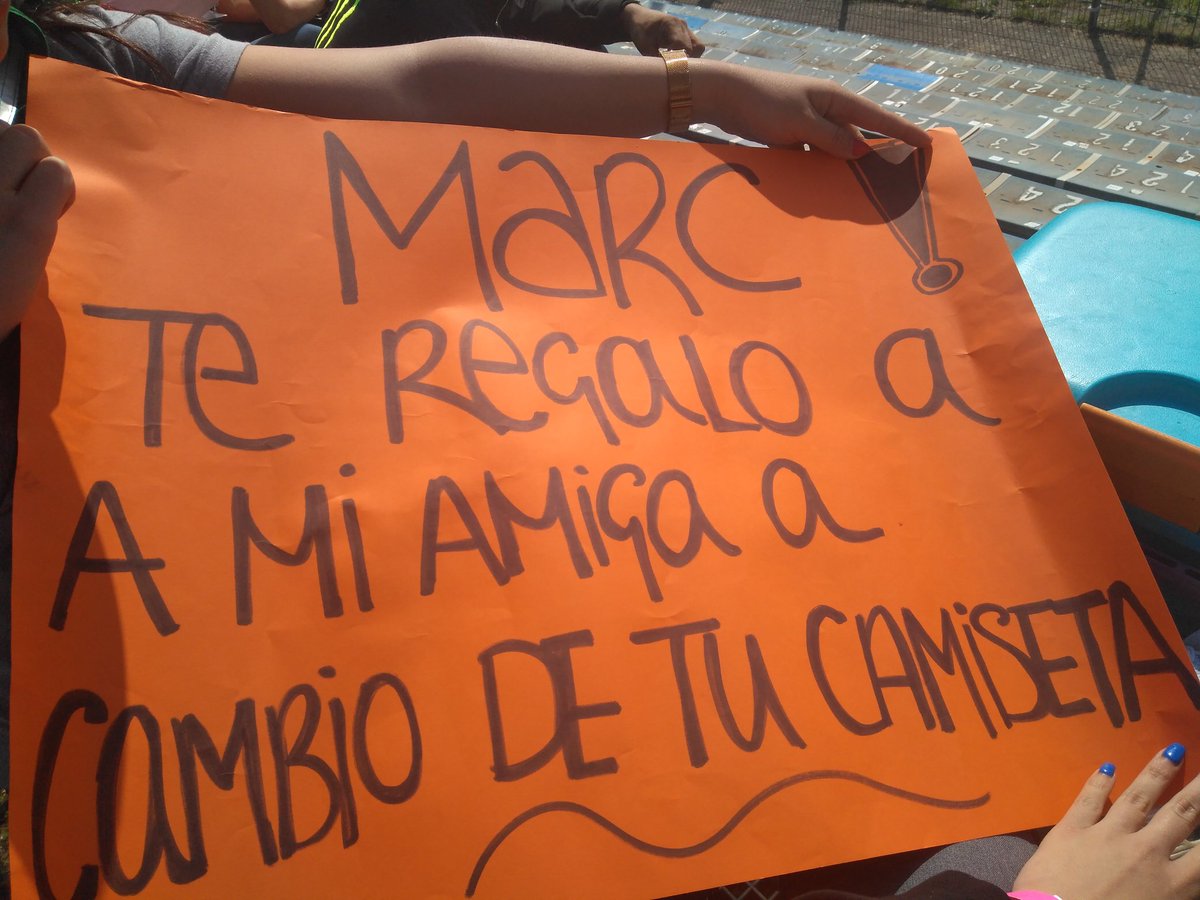 MaRC !
Te Regalo a
A Mi AMiga a
CaMBio DE TU CAMiSETA